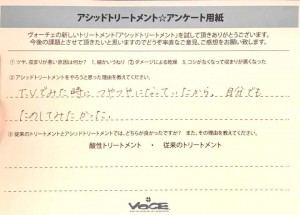 アシッドトリートメント☆アンケート用紙
ヴォーチェの新しいトリートメント「アシッドトリートメント」を試して頂きありがとうございます。
今後の課題とさせて頂きたいと思いますのでどうぞ率直なご意見、ご感想をお願い致します。
①ツヤ、収まりが悪い原因は何か? 1. 細かいうねり ② ダメージによる乾燥 3. コシがなくなって収まりが悪くなった
②アシッドトリートメントをやろうと思った理由を教えてください。
T.Vでみた時につやつやになっていたから、自分でも
ためしてみたかった。
③従来のトリートメントとアシッドトリートメントでは、どちらが良かったですか? また、その理由を教えてください。
酸性トリートメント ・ 従来のトリートメント
VOCE